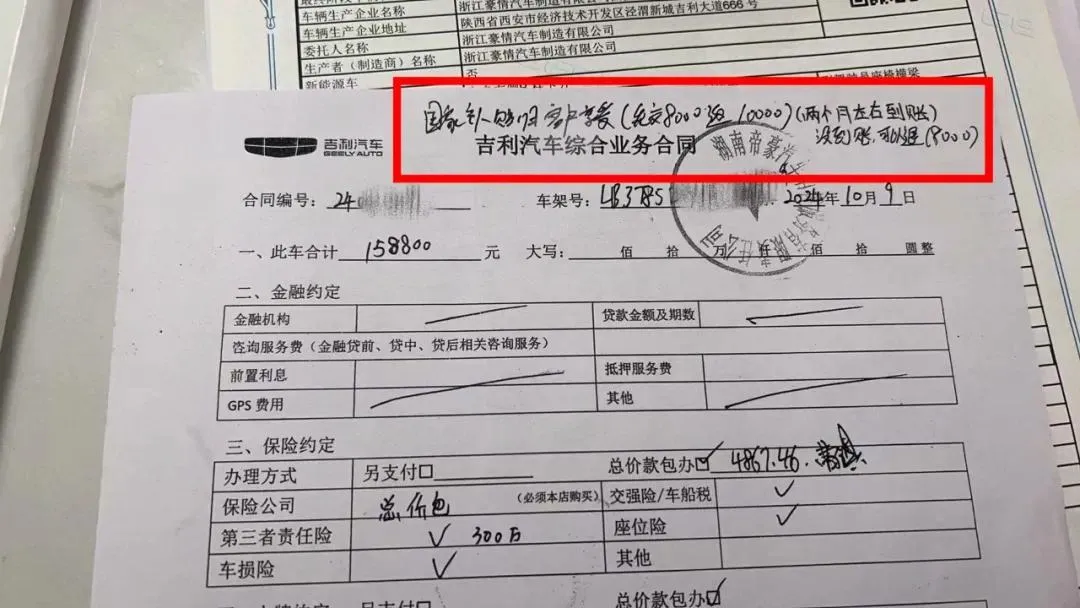 车辆生产企业名称 浙江豪情汽车制造有限公司
车辆生产企业地址 陕西省西安市经济技术开发区泾渭新城吉利大道666号
委托人名称 浙江豪情汽车制造有限公司
生产者（制造商）名称 浙江豪情汽车制造有限公司
新能源车 否
国家补 客户享受(先交8000返10000)(两个月左右到账)
没到账,可退(8000)
吉利汽车
GEELY AUTO
吉利汽车综合业务合同
湖南帝豪汽车 有限责任公司
合同编号： 24 车架号： LB378S 2024年10月9日
一、此车合计 158800 元 大写： 佰 拾 万 仟 佰 拾 圆整
二、金融约定
金融机构 贷款金额及期数
咨询服务费（金融贷前、贷中、贷后相关咨询服务）
前置利息 抵押服务费
GPS 费用 其他
三、保险约定
办理方式 另支付□ 总价款包办☑ 4867.46
保险公司 总价包 （必须本店购买） 交强险/车船税 ✓
第三者责任险 ✓ 300万 座位险 ✓
车损险 ✓ 其他
另支付□ 总价款包办☑